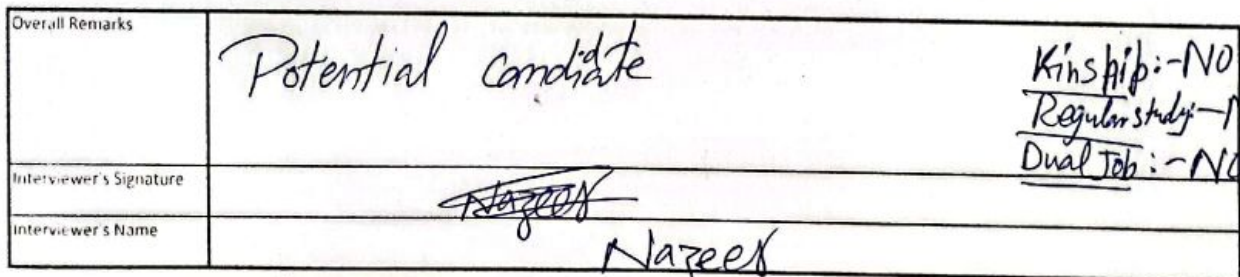 Overall Remarks
Potential Candidate
Kinship:-NO
Regular study:-N
Dual Job:-NO
Interviewer's Signature
Nazeer
Interviewer's Name
Nazeer